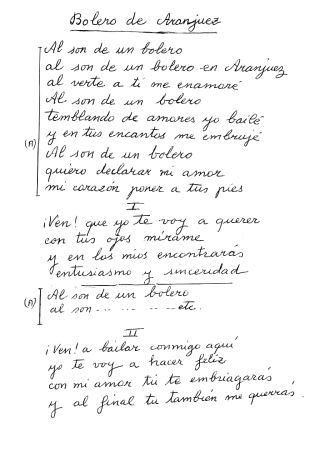 Bolero de Aranjuez
Al son de un bolero
al son de un bolero en Aranjuez
al verte a ti me enamoré
Al son de un bolero
temblando de amores yo bailé
(A) y en tus encantos me embrujé
Al son de un bolero
quiero declarar mi amor
mi corazón poner a tus pies
I
¡Ven! que yo te voy a querer
con tus ojos mírame
y en los mios encontrarás
entusiasmo y sinceridad
(A) Al son de un bolero
al son - - - - - - - - etc.
II
¡Ven! a bailar conmigo aquí
yo te voy a hacer feliz
con mi amor tú te embriagarás
y al final tu también me querrás.